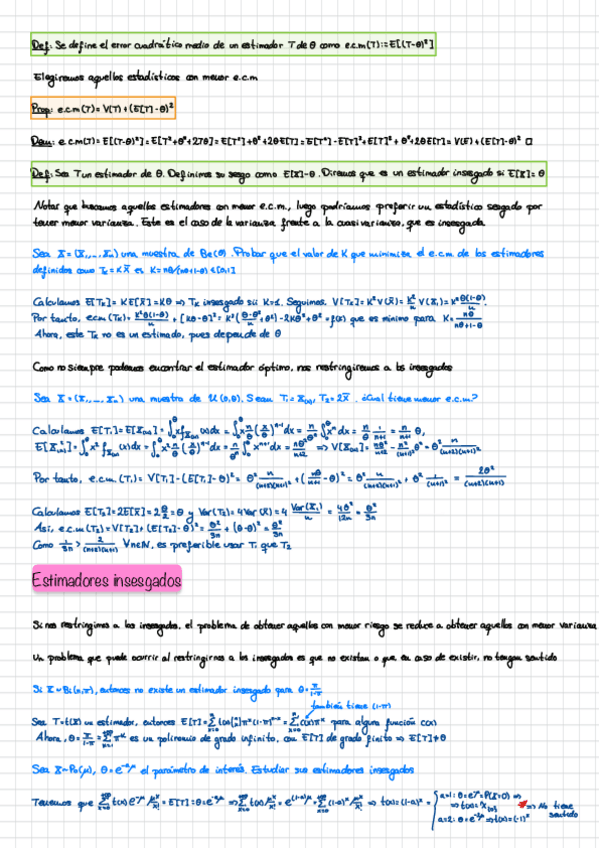 Def: Se define el error cuadrático medio de un estimador T de θ como e.c.m(T):=E[(T-θ)²]
Elegiremos aquellos estadísticos con menor e.c.m
Prop: e.c.m(T)= V(T)+(E[T]-θ)²
Dem: e.c.m(T)=E[(T-θ)²]=E[T²+θ²+2Tθ]=E[T²]+θ²+2θE[T]=E[T²]-E[T]²+E[T]²+θ²+2θE[T]=V(T)+(E[T]-θ)² □
Def: Sea T un estimador de θ. Definimos su sesgo como E[X]-θ. Diremos que es un estimador insesgado si E[X]=θ
Notar que buscamos aquellos estimadores con menor e.c.m., luego podríamos preferir un estadístico sesgado por
tener menor varianza. Este es el caso de la varianza frente a la cuasivarianza, que es insesgada.
Sea X=(X₁,...,Xn) una muestra de Be(θ). Probar que el valor de K que minimiza el e.c.m. de los estimadores
definidos como Tk=KX̄ es K=nθ/(nθ+1-θ) ∈[0,1]
Calculamos E[Tk]=KE[X̄]=Kθ ⇒ Tk insesgado sii K=1. Seguimos, V(Tk)=K²V(X̄)=K²/n V(X₁)=K² θ(1-θ)/n.
Por tanto, ecm(Tk)= K²θ(1-θ)/n + [Kθ-θ]²=K²(θ-θ²/n+θ²)-2Kθ²+θ²=f(K) que es mínimo para K= nθ/nθ+1-θ
Ahora, este Tk no es un estimado, pues depende de θ
Como no siempre podemos encontrar el estimador óptimo, nos restringiremos a los insesgados
Sea X=(X₁,...,Xn) una muestra de U(0,θ). Sean T₁=X(n), T₂=2X̄. ¿Cuál tiene menor e.c.m.?
Calculamos E[T₁]=E[X(n)]=∫₀^θ x f_X(n)(x)dx=∫₀^θ x n/θ (x/θ)^n-1 dx = n/θ^n ∫₀^θ x^n dx = n/n+1 θ,
E[X(n)²]=∫₀^θ x² f_X(n)(x)dx=∫₀^θ x² n/θ (x/θ)^n-1 dx= n/θ^n ∫₀^θ x^n+1 dx = nθ²/n+2 ⇒ V[X(n)]= nθ²/n+2 - n²/(n+1)² θ² = θ² n/(n+2)(n+1)²
Por tanto, e.c.m.(T₁)=V[T₁]-(E[T₁]-θ)²=θ² n/(n+2)(n+1)² +(nθ/n+1 -θ)²=θ² n/(n+2)(n+1)² + θ² 1/(n+1)² = 2θ²/(n+2)(n+1)
Calculamos E[T₂]=2E[X̄]=2 θ/2=θ y Var(T₂)=4Var(X̄)=4 Var(X₁)/n = 4θ²/12n = θ²/3n
Así, e.c.m(T₂)=V[T₂]+(E[T₂]-θ)²= θ²/3n +(θ-θ)²= θ²/3n
Como 1/3n > 2/(n+2)(n+1) ∀n∈ℕ, es preferible usar T₁ que T₂
Estimadores insesgados
Si nos restringimos a los insesgados, el problema de obtener aquellos con menor riesgo se reduce a obtener aquellos con menor varianza
Un problema que puede ocurrir al restringirnos a los insesgados es que no existan o que, en caso de existir, no tengan sentido
Si X~Bi(n,π), entonces no existe un estimador insesgado para θ= π/1-π
también tiene (1-π)
Sea T=t(X) un estimador, entonces E[T]=Σ t(x)(n x)π^x(1-π)^n-x=Σ c(x)π^x para alguna función c(x)
Ahora, θ= π/1-π = Σ π^x es un polinomio de grado infinito, con E[T] de grado finito ⇒ E[T]≠θ
Sea X~Po(μ), θ=e^-aμ el parámetro de interés. Estudiar sus estimadores insesgados
Tenemos que Σ t(x)e^-μ μ^x/x! =E[T]=θ=e^-aμ ⇒ Σ t(x) μ^x/x! = e^(1-a)μ = Σ (1-a)^x μ^x/x! ⇒ t(x)=(1-a)^x = { a=1: θ=e^-μ=P(X=0) ⇒
⇒ t(x)=X{0}
a=2: θ=e^-2μ ⇒ t(x)=(-1)^x
⇒ No tiene
sentido